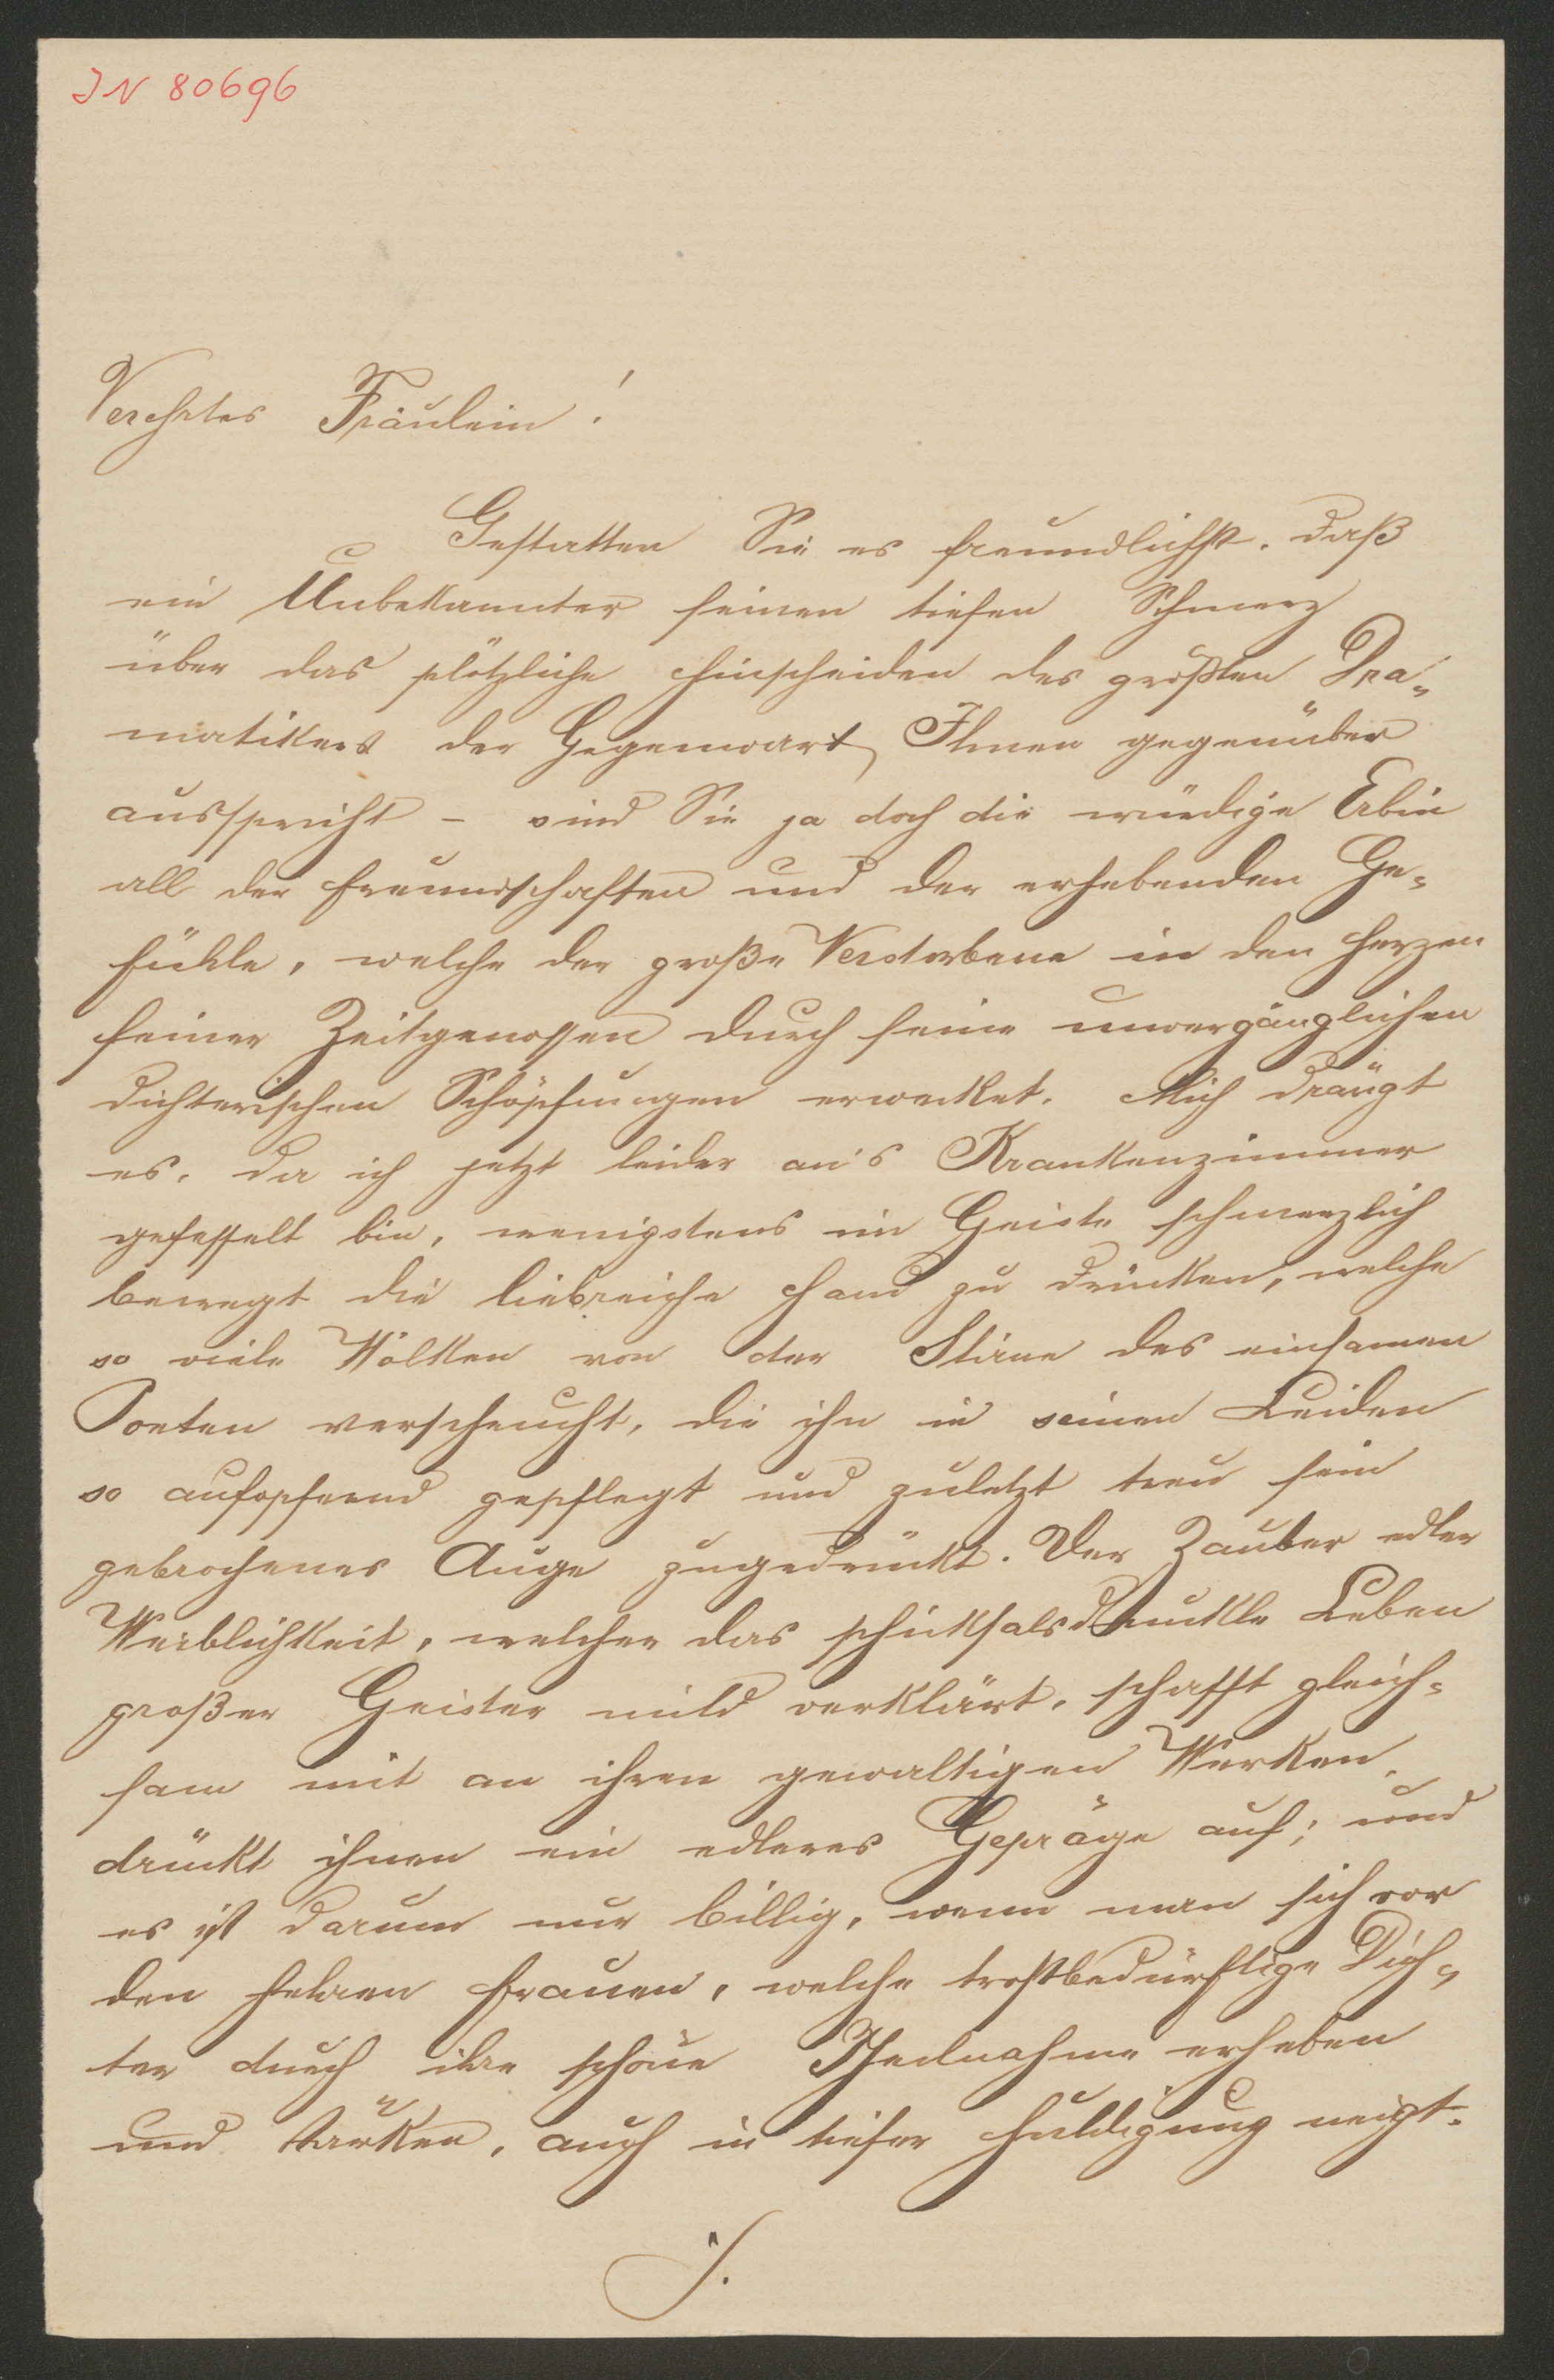 JN 80696
Verehrtes Fräulein!
Gestatten Sie es freundlichst, daß
ein Unbekannter seinen tiefen Schmerz
über das plötzliche Hinscheiden des größten Dra-
matikers der Gegenwart, Ihnen gegenüber
ausspricht – sind Sie ja doch die würdige Erbin
all der Freundschaften und der erhebenden Ge-
fühle, welche der große Verstorbene in den Herzen
seiner Zeitgenossen durch seine unvergänglichen
dichterischen Schöpfungen erwecket. Mich drängt
es, da ich jetzt leider an's Krankenzimmer
gefesselt bin, wenigstens im Geiste schmerzlich
bewegt die liebreiche Hand zu drücken, welche
so viele Wolken von der Stirne des einsamen
Poeten verscheucht, die ihn in seinen Leiden
so aufopfernd gepflegt und zuletzt treu sein
gebrochenes Auge zugedrückt. Der Zauber edler
Weiblichkeit, welcher das schicksalsdunkle Leben
großer Geister mild verklärt, schafft gleich-
sam mit an ihren gewaltigen Werken,
drückt ihnen ein edleres Gepräge auf; und
es ist darum nur billig, wenn man sich vor
den hehren Frauen, welche trostbedürftige Dich-
ter durch ihre schöne Theilnahme erheben
und stärken, auch in tiefer Huldigung neigt.